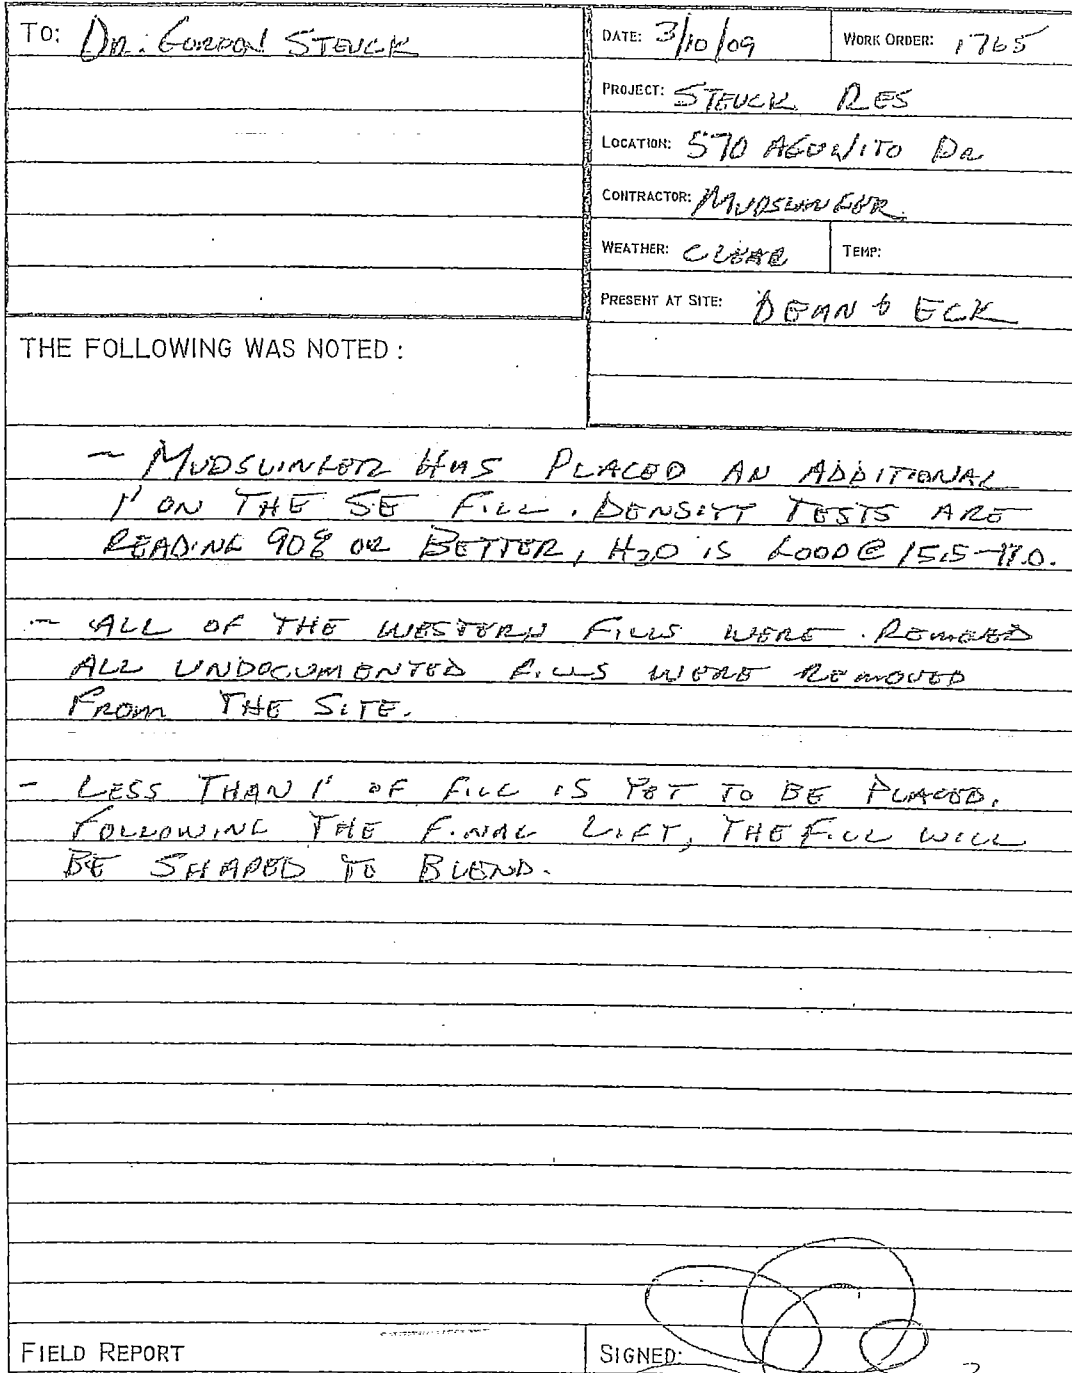 TO: DR. GORDON STEUCK
DATE: 3/10/09
WORK ORDER: 1765
PROJECT: STEUCK RES
LOCATION: 570 AGUAJITO DR
CONTRACTOR: MUDSLINGER
WEATHER: CLEAR
TEMP:
PRESENT AT SITE: DEAN & ECK
THE FOLLOWING WAS NOTED:
- MUDSLINGER HAS PLACED AN ADDITIONAL
1' ON THE SE FILL. DENSITY TESTS ARE
READING 90% OR BETTER, H2O IS GOOD @ 15.5-17.0.
- ALL OF THE WESTERN FILLS WERE REMOVED
ALL UNDOCUMENTED FILLS WERE REMOVED
FROM THE SITE.
- LESS THAN 1' OF FILL IS YET TO BE PLACED.
FOLLOWING THE FINAL LIFT, THE FILL WILL
BE SHAPED TO BLEND.
FIELD REPORT
SIGNED: